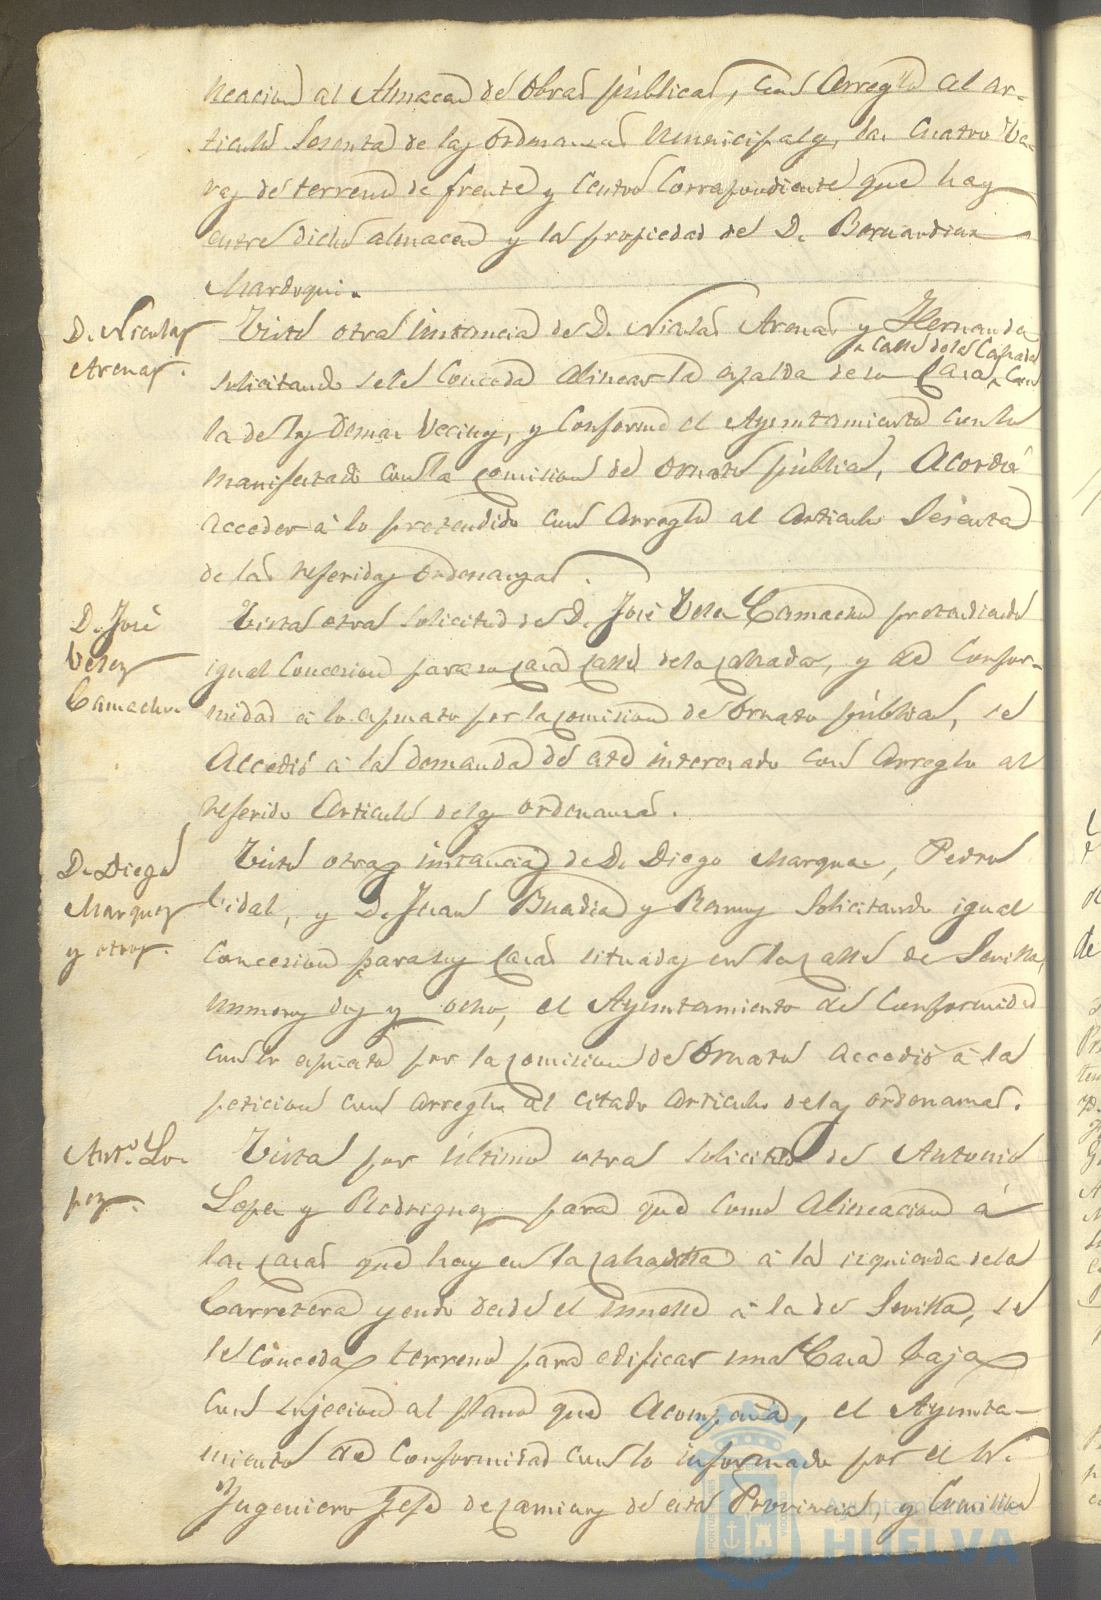 neacion al Almacen de Obras públicas, con arreglo al ar-
ticulo Sesenta de las Ordenanzas Municipales, las cuatro Va-
ras de terreno de frente y centro correspondiente que hay
entre dicho almacen y la propiedad de D. Bernardino
Mardoqui.
D. Nicolas
Arenas.
Vista otra instancia de D. Nicolas Arenas y Hernandez
calle de la Calzada
solicitando se le conceda alinear la espalda de su Casa con
la de los demas Vecinos, y conforme el Ayuntamiento con lo
manifestado con la comision de Ornato pública, Acordó
acceder á lo pretendido con arreglo al articulo Sesenta
de las referidas ordenanzas.
D. José
Velez
Camacho.
Vista otra solicitud de D. José Velez Camacho pretendiendo
igual concesion para su casa calle de la calzada, y de confor-
midad á lo espuesto por la comision de Ornato pública, se
Accedió á la demanda de este interesado con arreglo al
referido articulo de las ordenanzas.
D. Diego
Marquez
y otros.
Vista otras instancias de D. Diego Marquez, Pedro
Vidal, y D. Juan Buadia y Ramos solicitando igual
concesion para sus casas situadas en la calle de Sevilla,
numeros dos y ocho, el Ayuntamiento de conformidad
con lo espuesto por la comision de Ornato accedió á la
peticion con arreglo al citado articulo de las ordenanzas.
Antº. Lo-
pez.
Vista por último otra solicitud de Antonio
Lopez y Rodriguez para que como alineacion á
las casas que hay en la calzadilla á la izquierda de la
Carretera yendo desde el muelle á la de Sevilla, se
le conceda terreno para edificar una Casa baja
con sujecion al plano que Acompaña, el Ayunta-
miento de conformidad con lo informado por el Sr.
Ingeniero Jefe de caminos de esta Provincia, y Comision
Ayuntamiento de
HUELVA